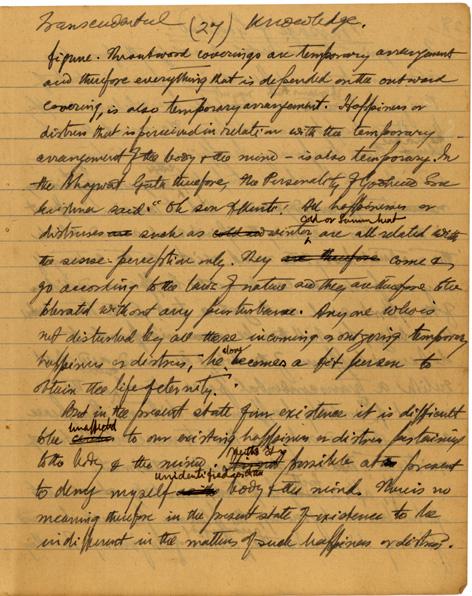 Transcendental (27) Knowledge.
figure. The outward coverings are temporary arrangement
and therefore everything that is depended on the outward
covering, is also temporary arrangement. Happiness or
distress that is perceived in relation with the temporary
arrangement of the body & the mind - is also temporary. In
the Bhagwat Geeta therefore, the Personality of Godhead Sree
Krishna said "Oh son of Kunti! All happiness or
cold or summer heat
distresses are such as winter are all related with
the sense-perception only. They are therefore come &
go according to the law of nature and they are therefore to be
tolerated without any perturbance. Any one who is
not disturbed by all these incoming or outgoing temporary
happiness or distress, he alone becomes a fit person to
obtain the life of eternity."
But in the present state of our existence it is difficult
unaffected
to be to our existing happiness or distress pertaining
to the body & the mind. possible at present
unidentified
to deny myself body & the mind. There is no
meaning therefore in the present state of existence to be
indifferent in the matters of such happiness or distress.